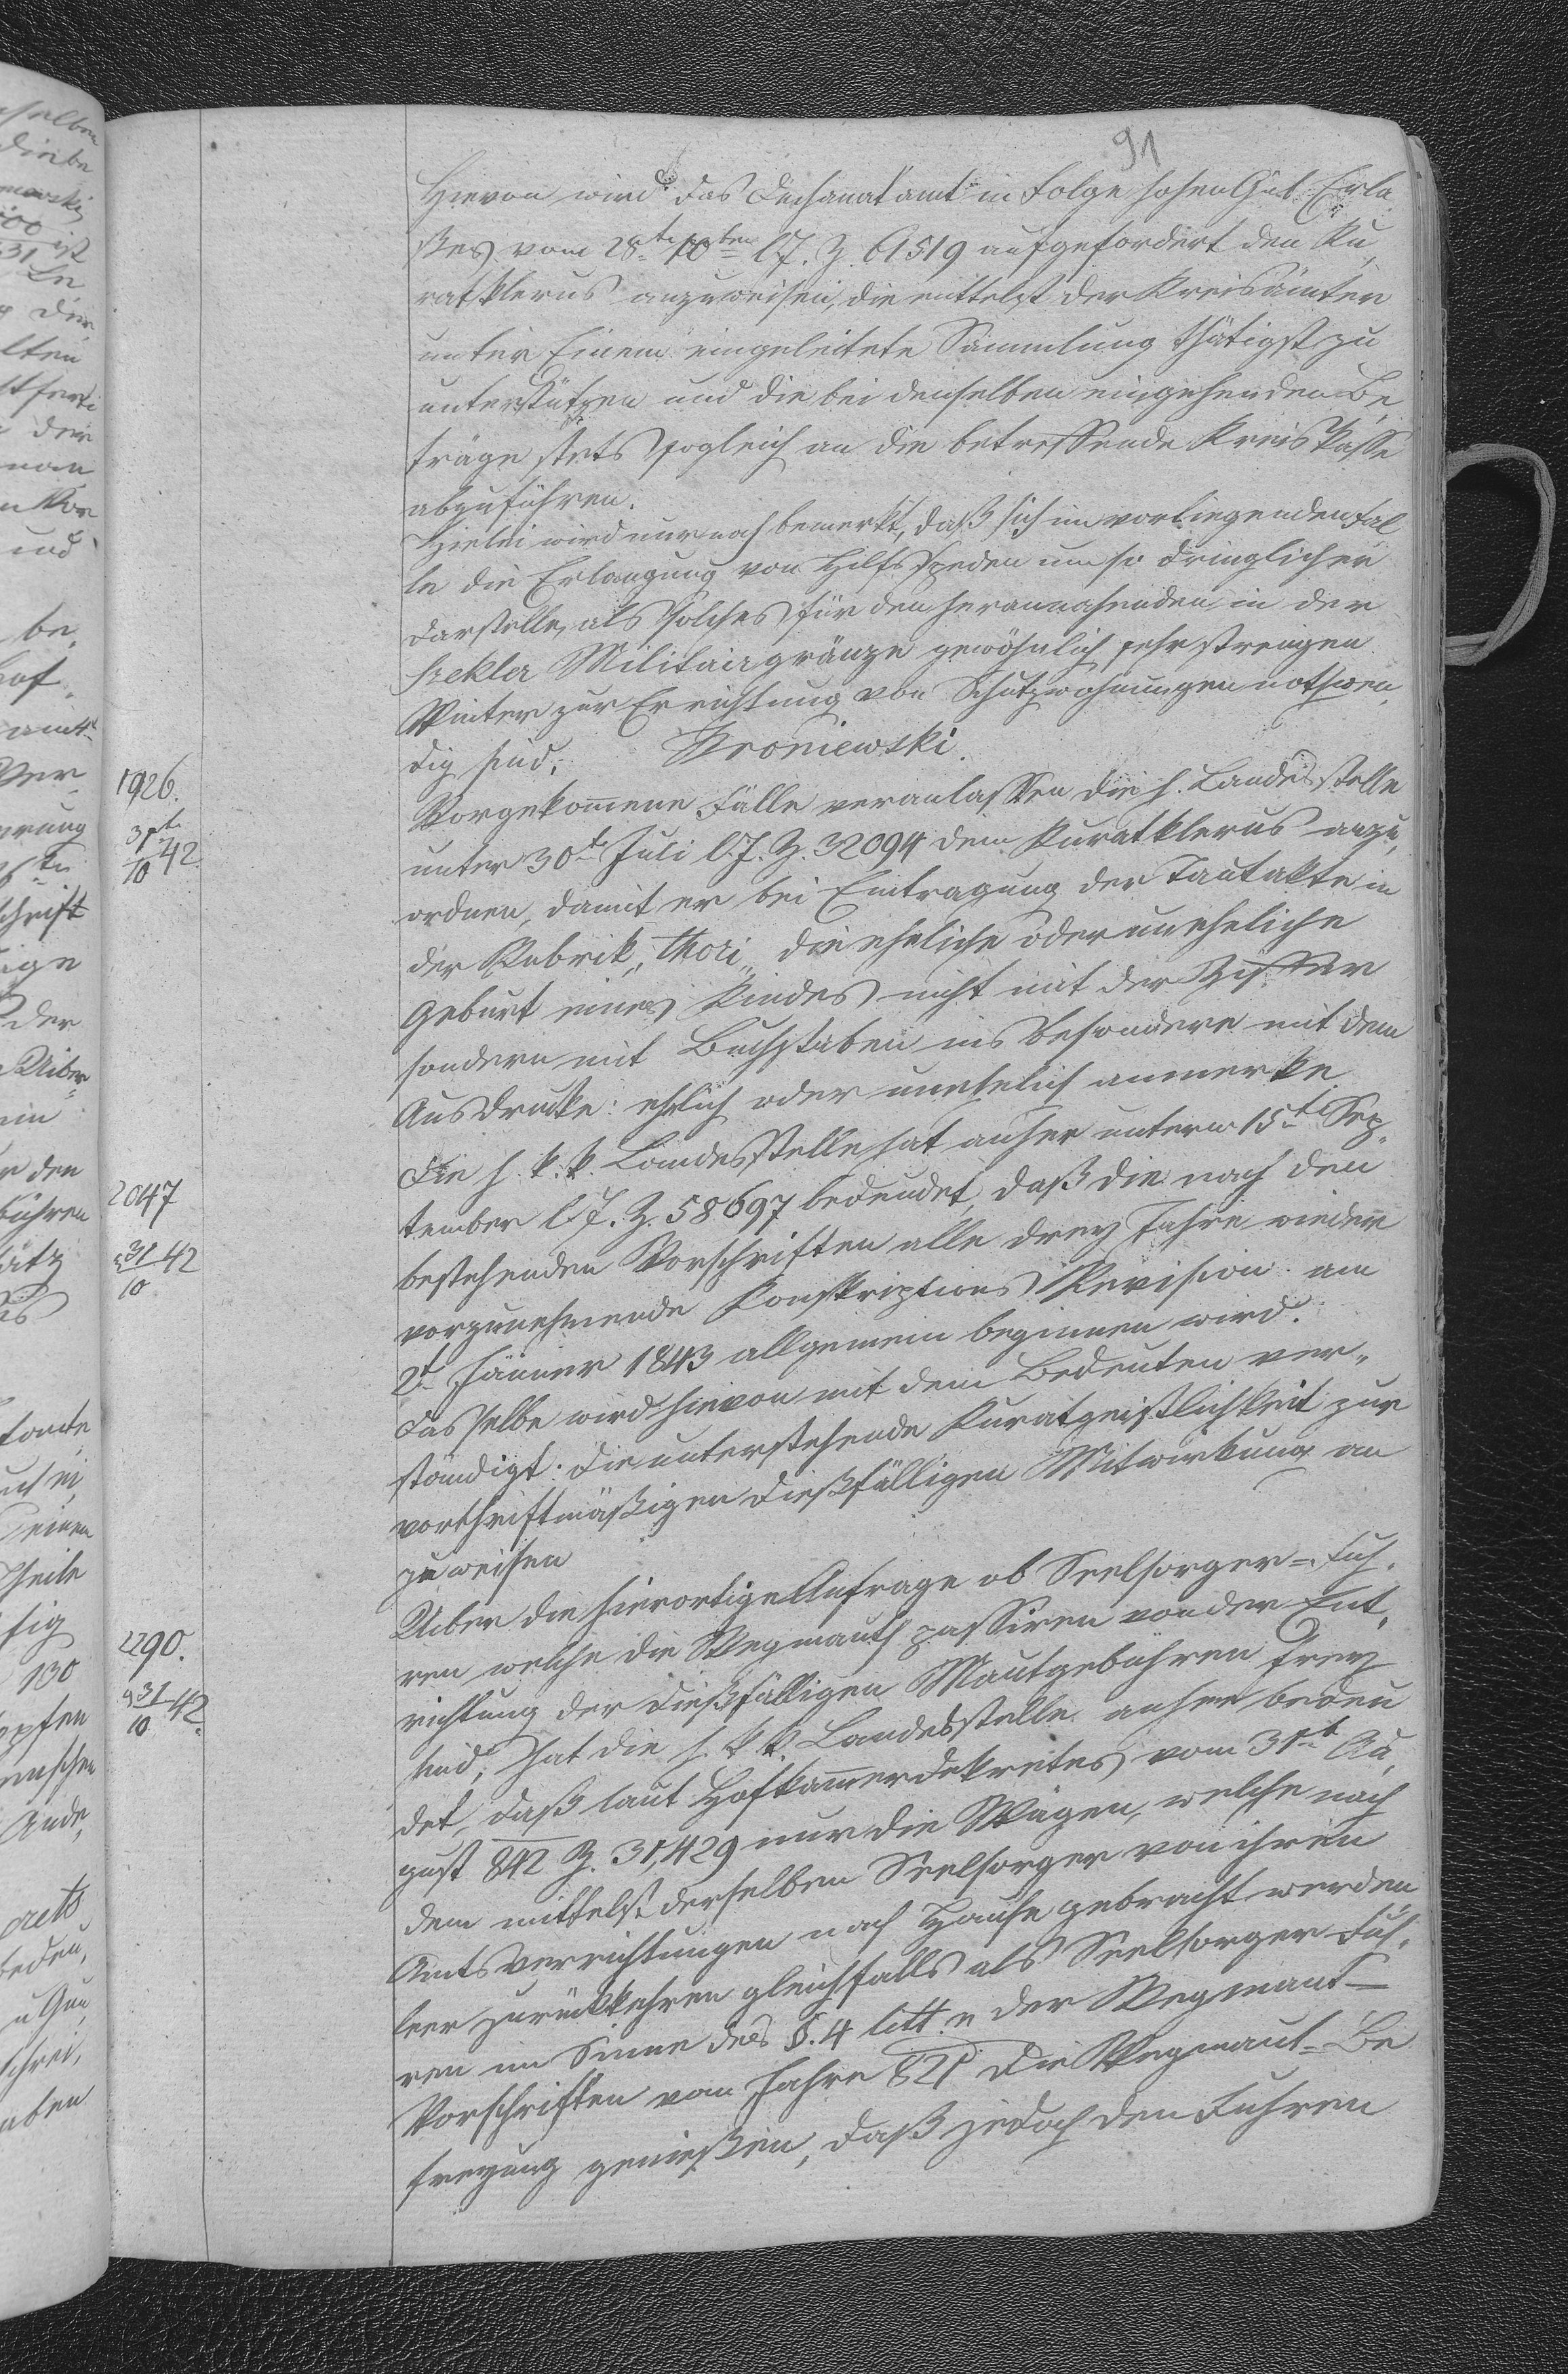 91
Hievon wird das Dechanatamt in Folge hohen Gub. Erla
ßes vom 28t 10ber l. J. Z. 61519 aufgefordert den Ku,
ratklerus anzuweisen, die mittelst der Kreisämter
unter Einem eingeleitete Sammlung thätigst zu
unterstützen und die bei denselben eingehenden Be,
träge stets sogleich an die betreffende Kreiskasse
abzuführen.
Hiebei wird nur noch bemerkt, daß sich im vorliegenden Fal
le die Erlangung von Hilfsspeden um so dringlicher
darstelle, als solches für den herannahenden in der
Szekler Militairgränze gewöhnlich sehr strengen
Winter zur Errichtung von Schutzwohnungen nothwen,
dig sind. Broniewski.
1926.
31t
10 42
Vorgekommene Fälle veranlassen die h. Landesstelle
unter 30t Juli l. J. Z. 32094 dem Kuratklerus anzu,
ordnen, damit er bei Eintragung der Taufakte in
der Rubrik „thori„ die eheliche oder uneheliche
Geburt eines Kindes nicht mit der Ziffer
sondern mit Buchstaben insbesondere mit dem
Ausdrucke: ehelich oder unehelich anmerke
2047
31 42
10
Die h. k. k. Landesstelle hat anher unterm 15t Sep,
tember l. J. Z. 58697 bedeudet, daß die nach den
bestehenden Vorschriften alle drey Jahre wieder
vorzunehmende Konskriptions Revision am
2t Jänner 1843 allgemein beginnen wird.
Dasselbe wird hievon mit dem Bedeuten ver,
ständigt: die unterstehende Kuratgeistlichkeit zur
vorschriftmäßigen dießfälligen Mitwirkung an
zuweisen
2290.
31 42
10
Uiber die hierortige Anfrage ob Seelsorger=Fuh,
ren welche die Wegmauth passiren von der Ent,
richtung der dießfälligen Mautgebühren frey
sind, hat die h. k. k. Landesstelle anher bedeu
det, daß laut Hofkammerdekretes vom 31t Au,
gust 842 Z. 31,429 nur die Wägen, welche nach
dem mittelst derselben Seelsorger von ihren
Amtsverrichtungen nach Hause gebracht werden
leer zurückkehren gleichfalls als Seelsorger Fuh,
ren im Sinne des §. 4 litt. n der Wegmaut=
Vorschriften vom Jahre 821 die Wegmaut=Be
freyung genießen, daß jedoch den Fuhren